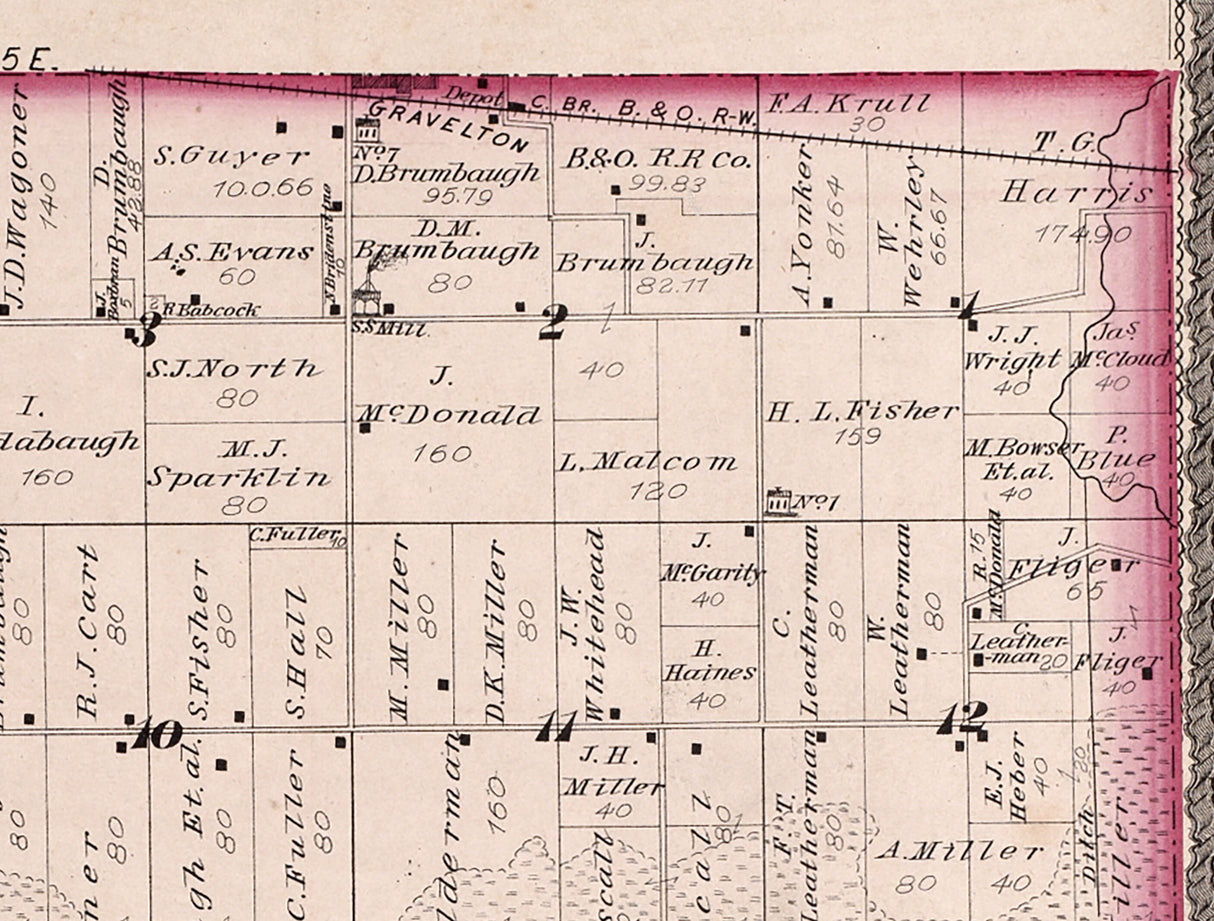 5 E.
J.D. Wagoner
140
D.
Brumbaugh
42.88
J.
Boardman
5
S. Guyer
100.66
A.S. Evans
60
R Babcock
2
N. Bridenstine
10
Depot
C. BR. B. & O. R-W.
GRAVELTON
No 7
D. Brumbaugh
95.79
D. M.
Brumbaugh
80
S.S Mill.
B. & O. R.R Co.
99.83
J.
Brumbaugh
82.11
F. A. Krull
30
A. Yonker
81.64
W.
Wehrley
66.67
T. G.
Harris
174.90
3
2
1
1
I.
dabaugh
160
S.J. North
80
M. J.
Sparklin
80
J.
McDonald
160
40
L. Malcom
120
H. L. Fisher
159
No 1
J. J.
Wright
40
Jas
McCloud
40
M. Bowser
Et. al.
40
P.
Blue
40
80
R. J. Cart
80
S. Fisher
80
C. Fuller
10
S. Hall
70
M. Miller
80
D.K. Miller
80
J. W.
Whitehead
80
J.
McGarity
40
H.
Haines
40
C.
Leatherman
80
W.
Leatherman
80
R. 15
McDonald
J.
Fliger
65
C.
Leather-
-man 20
J.
Fliger
40
10
11
12
80
ner
80
gh Et. al.
80
C. Fuller
80
lderman
160
J. H.
Miller
40
scall
call
80
F. T.
Leatherman
80
A. Miller
80
40
E. J.
Heber
40
120
Ditch
iller